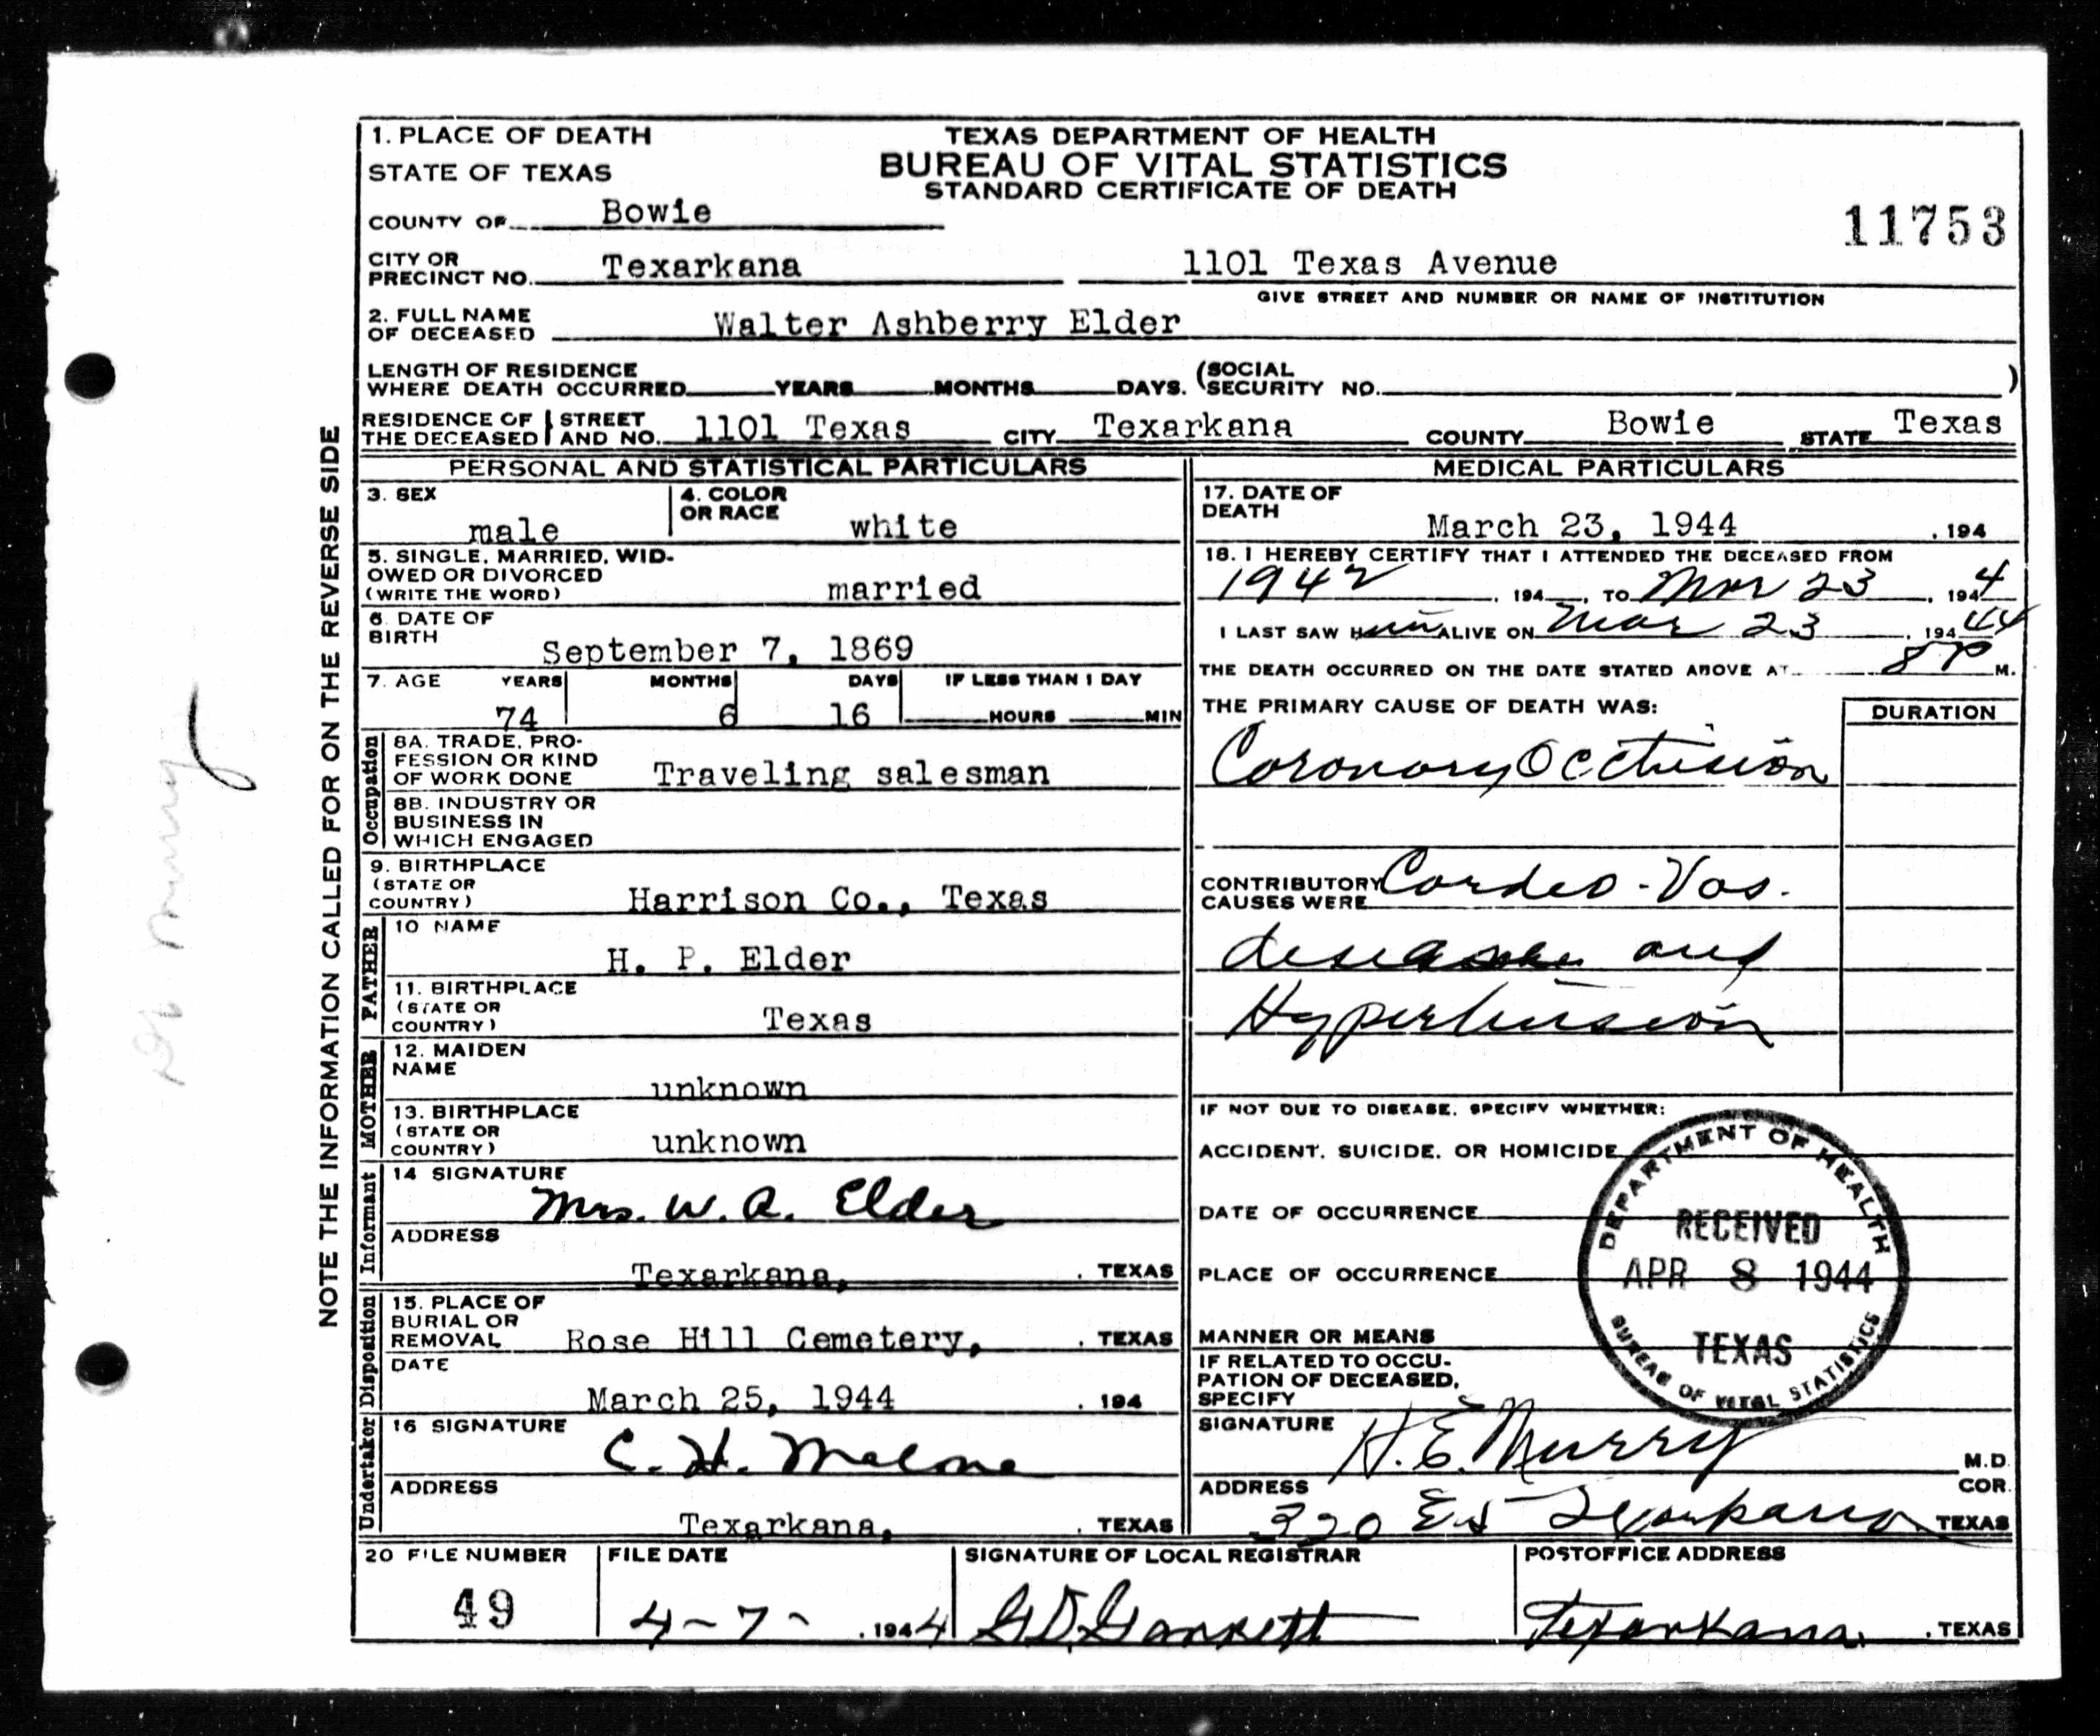 1. PLACE OF DEATH
STATE OF TEXAS
TEXAS DEPARTMENT OF HEALTH
BUREAU OF VITAL STATISTICS
STANDARD CERTIFICATE OF DEATH
COUNTY OF Bowie
11753
CITY OR
PRECINCT NO. Texarkana 1101 Texas Avenue
GIVE STREET AND NUMBER OR NAME OF INSTITUTION
2. FULL NAME
OF DECEASED Walter Ashberry Elder
LENGTH OF RESIDENCE
WHERE DEATH OCCURRED YEARS MONTHS DAYS. (SOCIAL
SECURITY NO. )
RESIDENCE OF THE DECEASED STREET AND NO. 1101 Texas CITY Texarkana COUNTY Bowie STATE Texas
PERSONAL AND STATISTICAL PARTICULARS
3. SEX
male
4. COLOR
OR RACE
white
5. SINGLE, MARRIED, WID-
OWED OR DIVORCED
(WRITE THE WORD) married
6. DATE OF
BIRTH
September 7, 1869
7. AGE YEARS MONTHS DAYS IF LESS THAN 1 DAY
74 6 16 HOURS MIN
Occupation
8A. TRADE, PRO-
FESSION OR KIND
OF WORK DONE Traveling salesman
8B. INDUSTRY OR
BUSINESS IN
WHICH ENGAGED
9. BIRTHPLACE
(STATE OR
COUNTRY) Harrison Co., Texas
FATHER
10 NAME
H. P. Elder
11. BIRTHPLACE
(STATE OR
COUNTRY) Texas
MOTHER
12. MAIDEN
NAME
unknown
13. BIRTHPLACE
(STATE OR
COUNTRY) unknown
Informant
14 SIGNATURE
Mrs. W. A. Elder
ADDRESS
Texarkana, . TEXAS
Disposition
15. PLACE OF
BURIAL OR
REMOVAL Rose Hill Cemetery, . TEXAS
DATE
March 25, 1944 . 194
Undertaker
16 SIGNATURE
C. H. Malone
ADDRESS
Texarkana, . TEXAS
MEDICAL PARTICULARS
17. DATE OF
DEATH
March 23, 1944 , 194
18. I HEREBY CERTIFY THAT I ATTENDED THE DECEASED FROM
1942 , 194 , TO Mar 23 , 1944
I LAST SAW him ALIVE ON Mar 23 , 194 44
THE DEATH OCCURRED ON THE DATE STATED ABOVE AT 8 P M.
THE PRIMARY CAUSE OF DEATH WAS:
DURATION
Coronary Occlusion
CONTRIBUTORY
CAUSES WERE Cardeo-Vas.
disease and
Hypertension
IF NOT DUE TO DISEASE, SPECIFY WHETHER:
ACCIDENT, SUICIDE, OR HOMICIDE
DATE OF OCCURRENCE
PLACE OF OCCURRENCE
MANNER OR MEANS
IF RELATED TO OCCU-
PATION OF DECEASED,
SPECIFY
DEPARTMENT OF HEALTH
RECEIVED
APR 8 1944
TEXAS
BUREAU OF VITAL STATISTICS
SIGNATURE H. E. Murry
M.D.
COR.
ADDRESS
320 E Texarkana TEXAS
20 FILE NUMBER
49
FILE DATE
4-7- , 1944
SIGNATURE OF LOCAL REGISTRAR
POSTOFFICE ADDRESS
Texarkana , TEXAS
NOTE THE INFORMATION CALLED FOR ON THE REVERSE SIDE
Murry